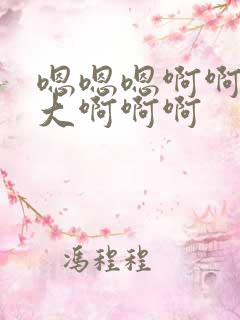 嗯嗯嗯啊啊
大啊啊啊
冯程程